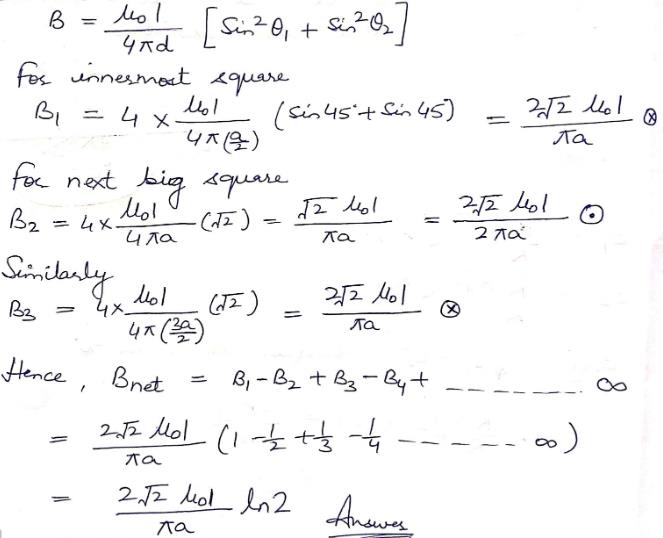 B = μ₀I / 4πd [Sin²θ₁ + Sin²θ₂]
For innermost square
B₁ = 4 × μ₀I / 4π(a/2) (Sin45° + Sin45) = 2√2 μ₀I / πa ⊗
For next big square
B₂ = 4 × μ₀I / 4πa (√2) = √2 μ₀I / πa = 2√2 μ₀I / 2πa ⊙
Similarly
B₃ = 4 × μ₀I / 4π(3a/2) (√2) = 2√2 μ₀I / πa ⊗
Hence, Bnet = B₁ - B₂ + B₃ - B₄ + _ _ _ _ _ _ _ ∞
= 2√2 μ₀I / πa (1 - 1/2 + 1/3 - 1/4 - - - - - - ∞)
= 2√2 μ₀I / πa ln2 Answer